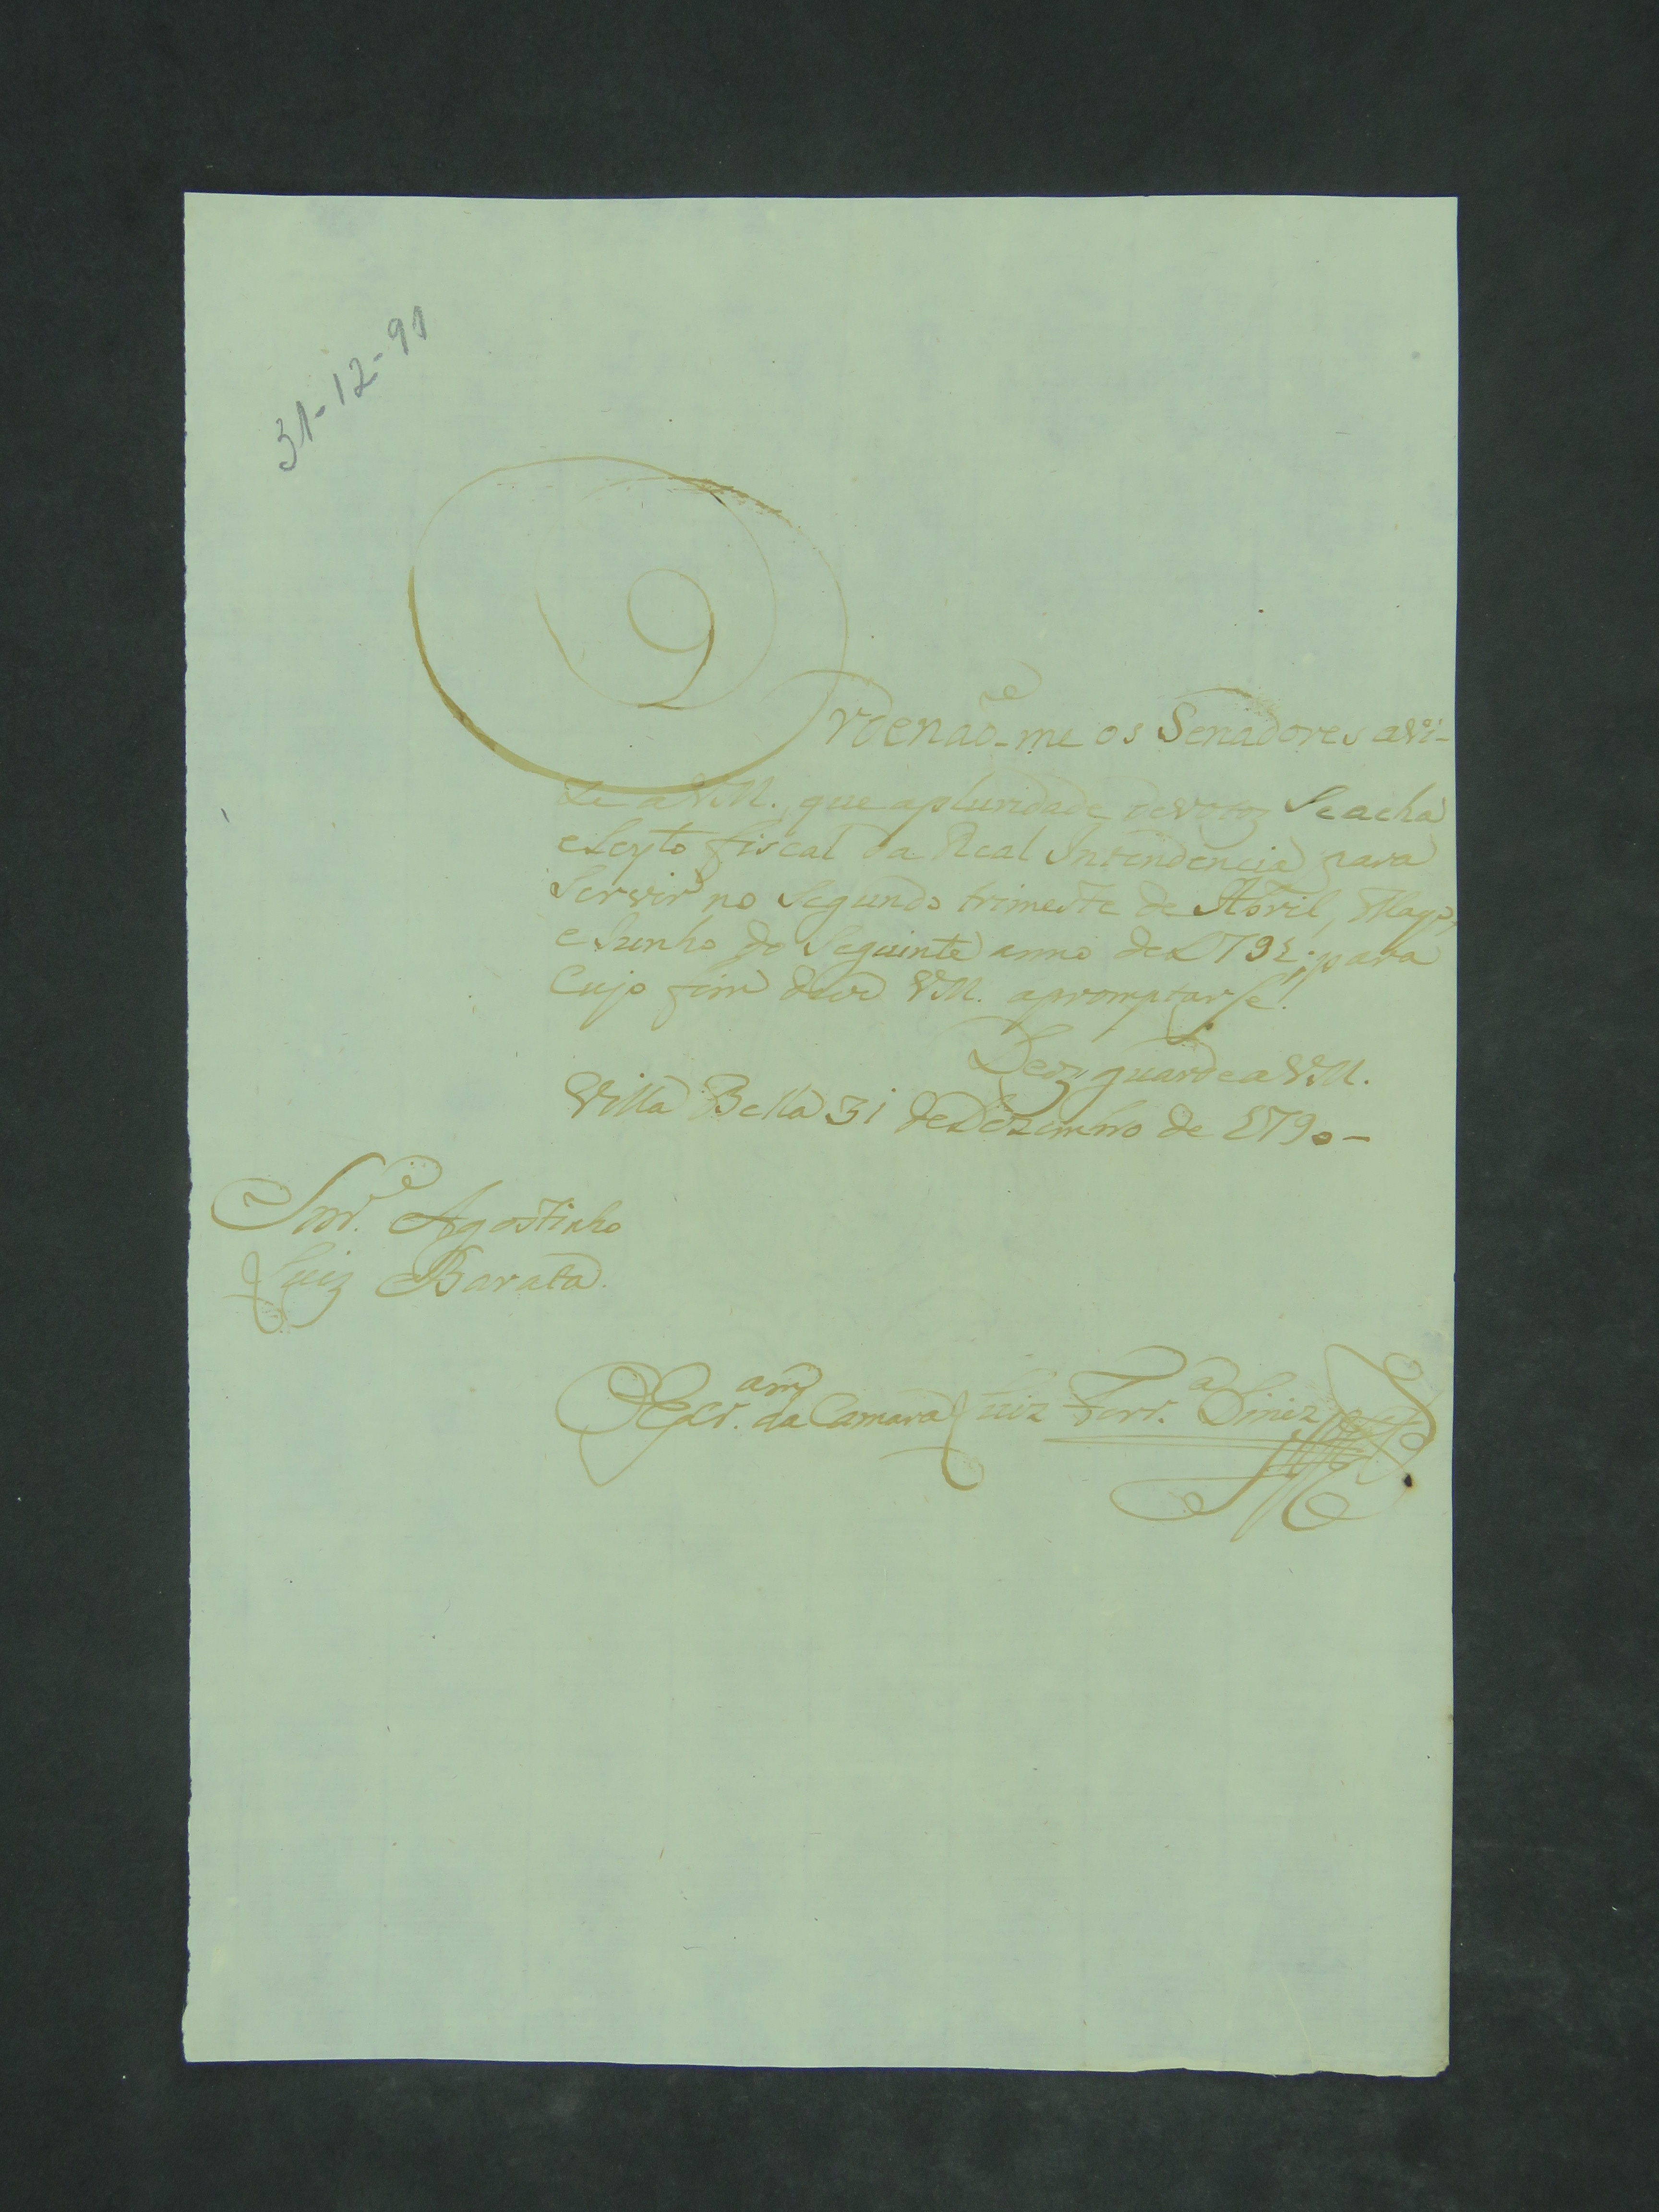 31-12-91
Ordenaõ-me os Senadores avi-
ze a VM. que apluridade devotoz Seacha
eleyto fiscal da Real Intendencia para
Servir no Segundo trimestre de Abril, Mayo,
e Junho do Seguinte anno de 1791. para
Cujo fim deve VM. apromptarse.
Deoz guarde a VM.
Villa Bella 31 deDezembro de 1790-
Snr. Agostinho
Luiz Barata.
O Escr.am da Camara Luiz Ferr.a Diniz